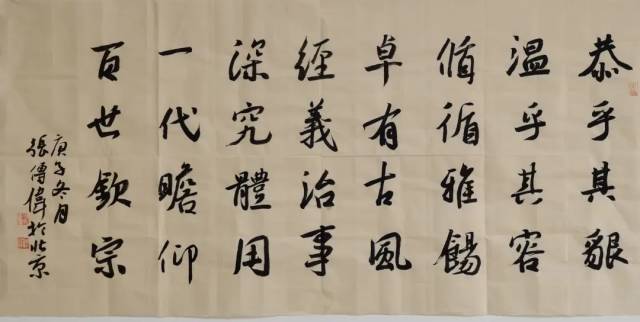 恭乎其貌
温乎其容
循循雅飭
卓有古風
經義治事
深究體用
一代瞻仰
百世欽宗
庚子冬月
張傳偉於北京